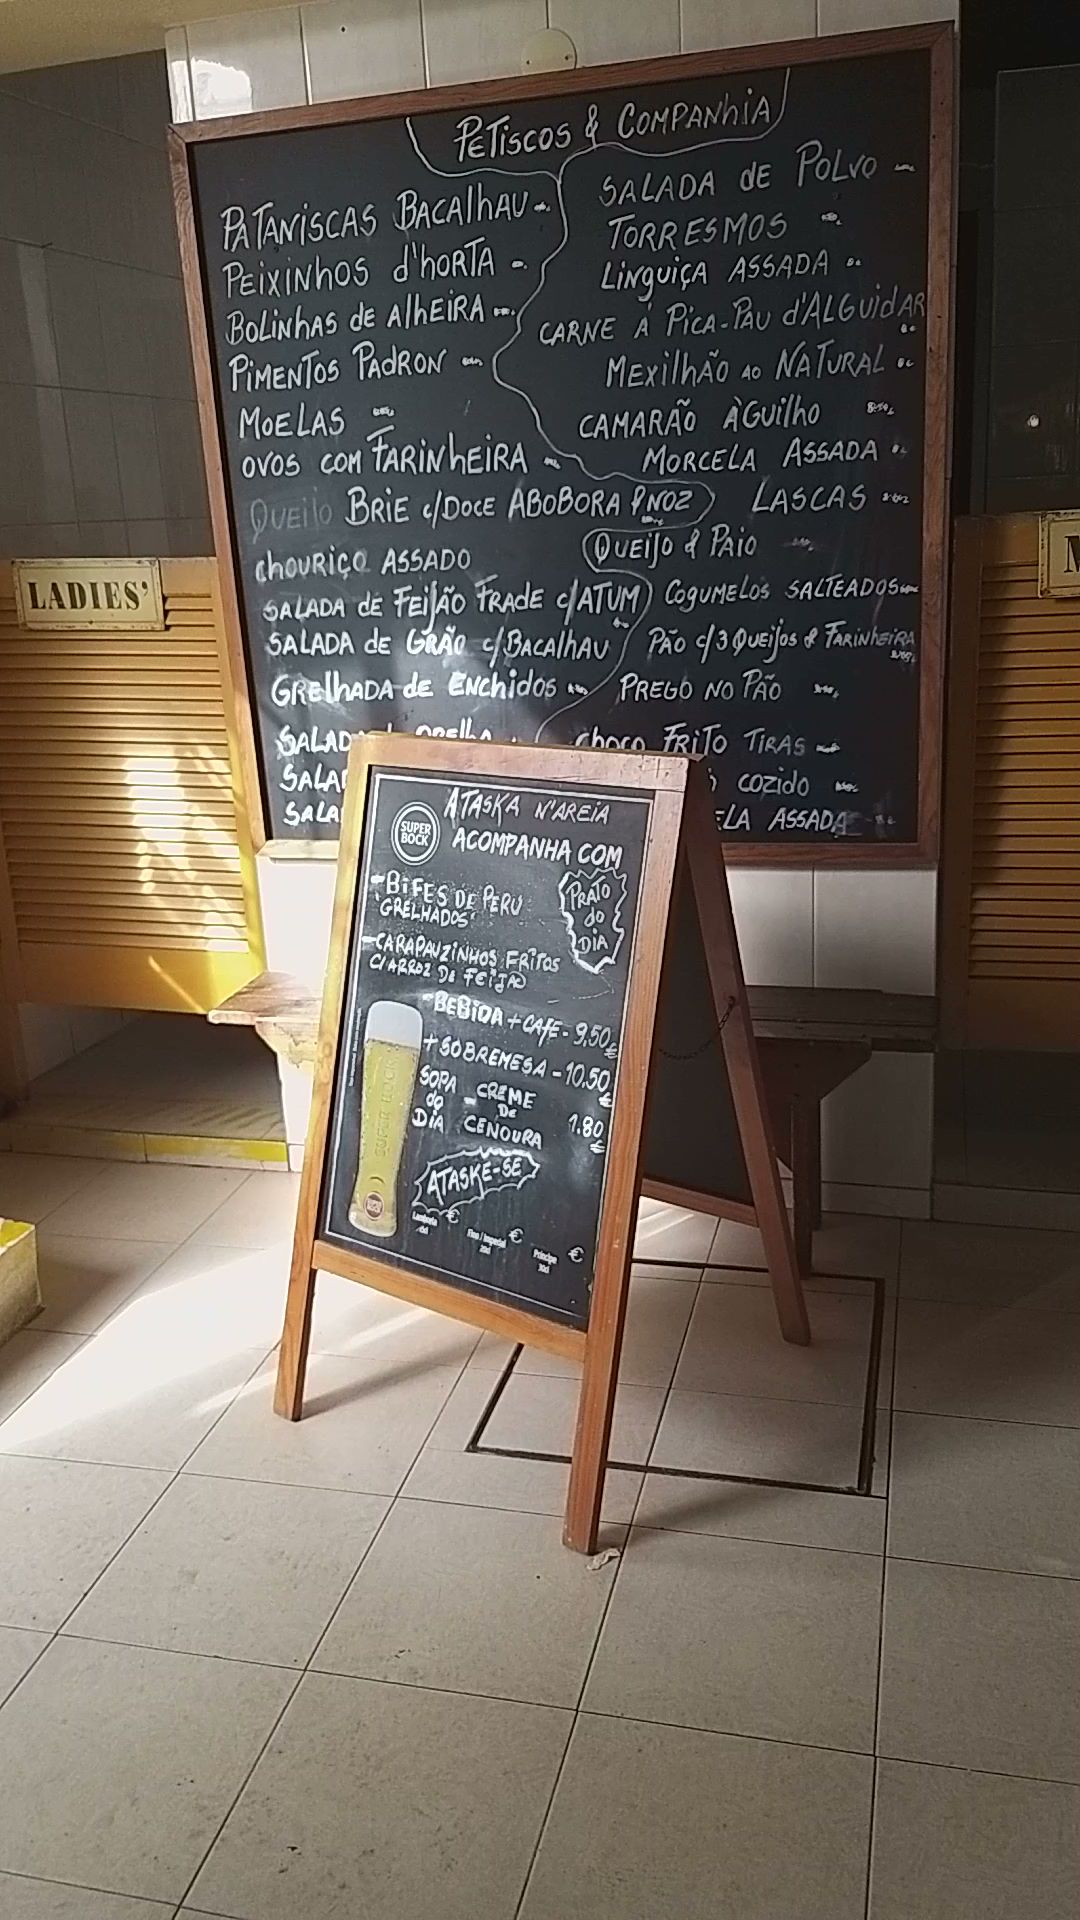 PETISCOS & COMPANHIA
PATANISCAS BACALHAU
PEIXINHOS d'hORTA
BOLINHAS de AlhEIRA
PIMENTOS PADRON
MOELAS
OVOS COM FARINHEIRA
QUEIJO BRIE c/DOCE ABOBORA & NOZ
chOURIÇO ASSADO
SALADA DE FEIJÃO FRADE c/ATUM
SALADA de GRÃO c/BACALHAU
GRELHADA de ENChIDOS
SALADA de ORELHA
SALADA DE POLVO
TORRESMOS
LINGUIÇA ASSADA
CARNE À PICA-PAU d'ALGUIDAR
MEXILHÃO AO NATURAL
CAMARÃO ÀGUILHO
MORCELA ASSADA
LASCAS
QUEIJO & PAIO
COGUMELOS SALTEADOS
PÃO C/3 QUEIJOS & FARINHEIRA
PREGO NO PÃO
chOCO FRITO TIRAS
COZIDO
ASSADA
LADIES'
ATASKA N'AREIA
SUPER BOCK
ACOMPANHA COM
PRATO do DIA
-BIFES DE PERU
GRELHADOS
-CARAPAUZINHOS FRITOS
C/ARROZ DE FEIJAO
-BEBIDA + CAFE - 9,50 €
+ SOBREMESA - 10.50 €
SOPA do DIA - CREME DE CENOURA 1.80 €
ATASKE-SE
SUPER BOCK
€ € €
Fino / Imperial
20cl
Príncipe
30cl